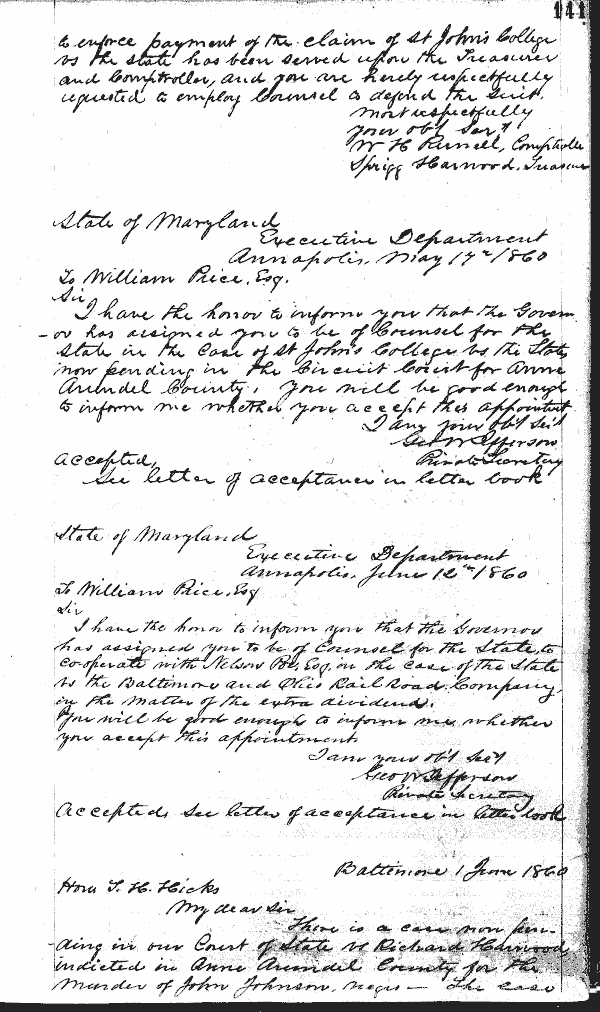 141
to enforce payment of the claim of St John's College
vs the State has been served upon the Treasurer
and Comptroller, and you are hereby respectfully
requested to employ Counsel to defend the suit.
most respectfully
your ob't Ser't
W H Purnell, Comptroller
Sprigg Harwood, Treasurer
State of Maryland
Executive Department
Annapolis, May 17th 1860
To William Price, Esq.
Sir
I have the honor to inform you that the Govern
or has assigned you to be of Counsel for the
State in the Case of St John's College vs the State,
now pending in the Circuit Court for Anne
Arundel County. You will be good enough
to inform me whether you accept this appointmt
I am your ob't Ser't
Geo W Jefferson
Private Secretary
Accepted,
See letter of acceptance in letter book
State of Maryland
Executive Department
Annapolis, June 12th 1860
To William Price, Esq
Sir
I have the honor to inform you that the Governor
has assigned you to be of Counsel for the State, to
co-operate with Nelson Poe, Esq, in the case of the State
vs the Baltimore and Ohio Rail Road Company,
in the matter of the extra dividend.
You will be good enough to inform me whether
you accept this appointment
I am your ob't Ser't
Geo W Jefferson
Private Secretary
Accepted, See letter of acceptance in letter book
Baltimore 1 June 1860
Hon T. H. Hicks
My dear Sir
There is a case now pen-
ding in our Court of State vs Richard Harwood
indicted in Anne Arundel County for the
Murder of John Johnson, negro - The case